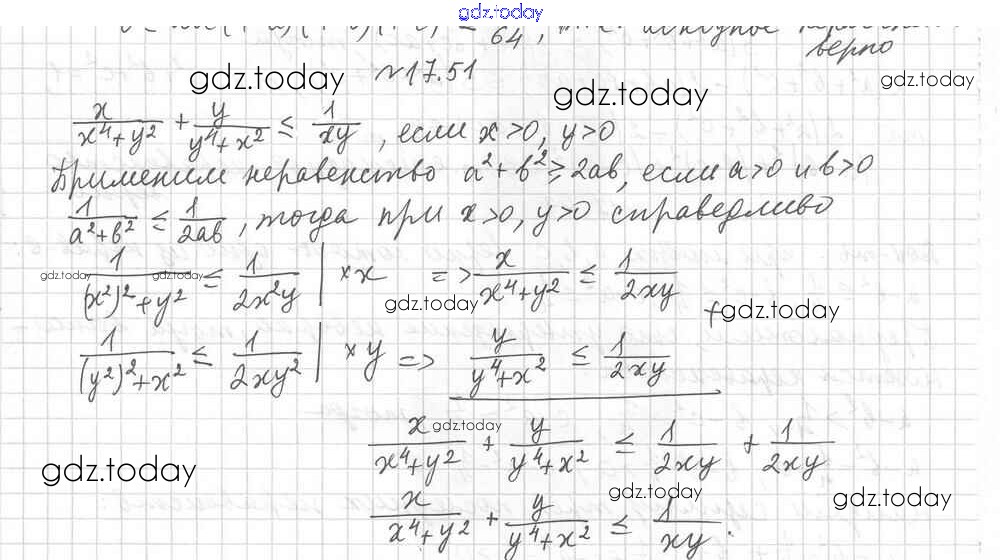 gdz.today
64, исходное
верно
gdz.today №17.51 gdz.today gdz.today
x/(x⁴+y²) + y/(y⁴+x²) ≤ 1/(xy), если x>0, y>0
Применим неравенство a²+b² ≥ 2ab, если a>0 и b>0
1/(a²+b²) ≤ 1/(2ab), тогда при x>0, y>0 справедливо
gdz.today gdz.today 1/((x²)²+y²) ≤ 1/(2x²y) | ×x => x/(x⁴+y²) ≤ 1/(2xy)
gdz.today + gdz.today
1/((y²)²+x²) ≤ 1/(2xy²) | ×y => y/(y⁴+x²) ≤ 1/(2xy)
gdz.today
x/(x⁴+y²) + y/(y⁴+x²) ≤ 1/(2xy) + 1/(2xy)
gdz.today gdz.today gdz.today
x/(x⁴+y²) + y/(y⁴+x²) ≤ 1/(xy).